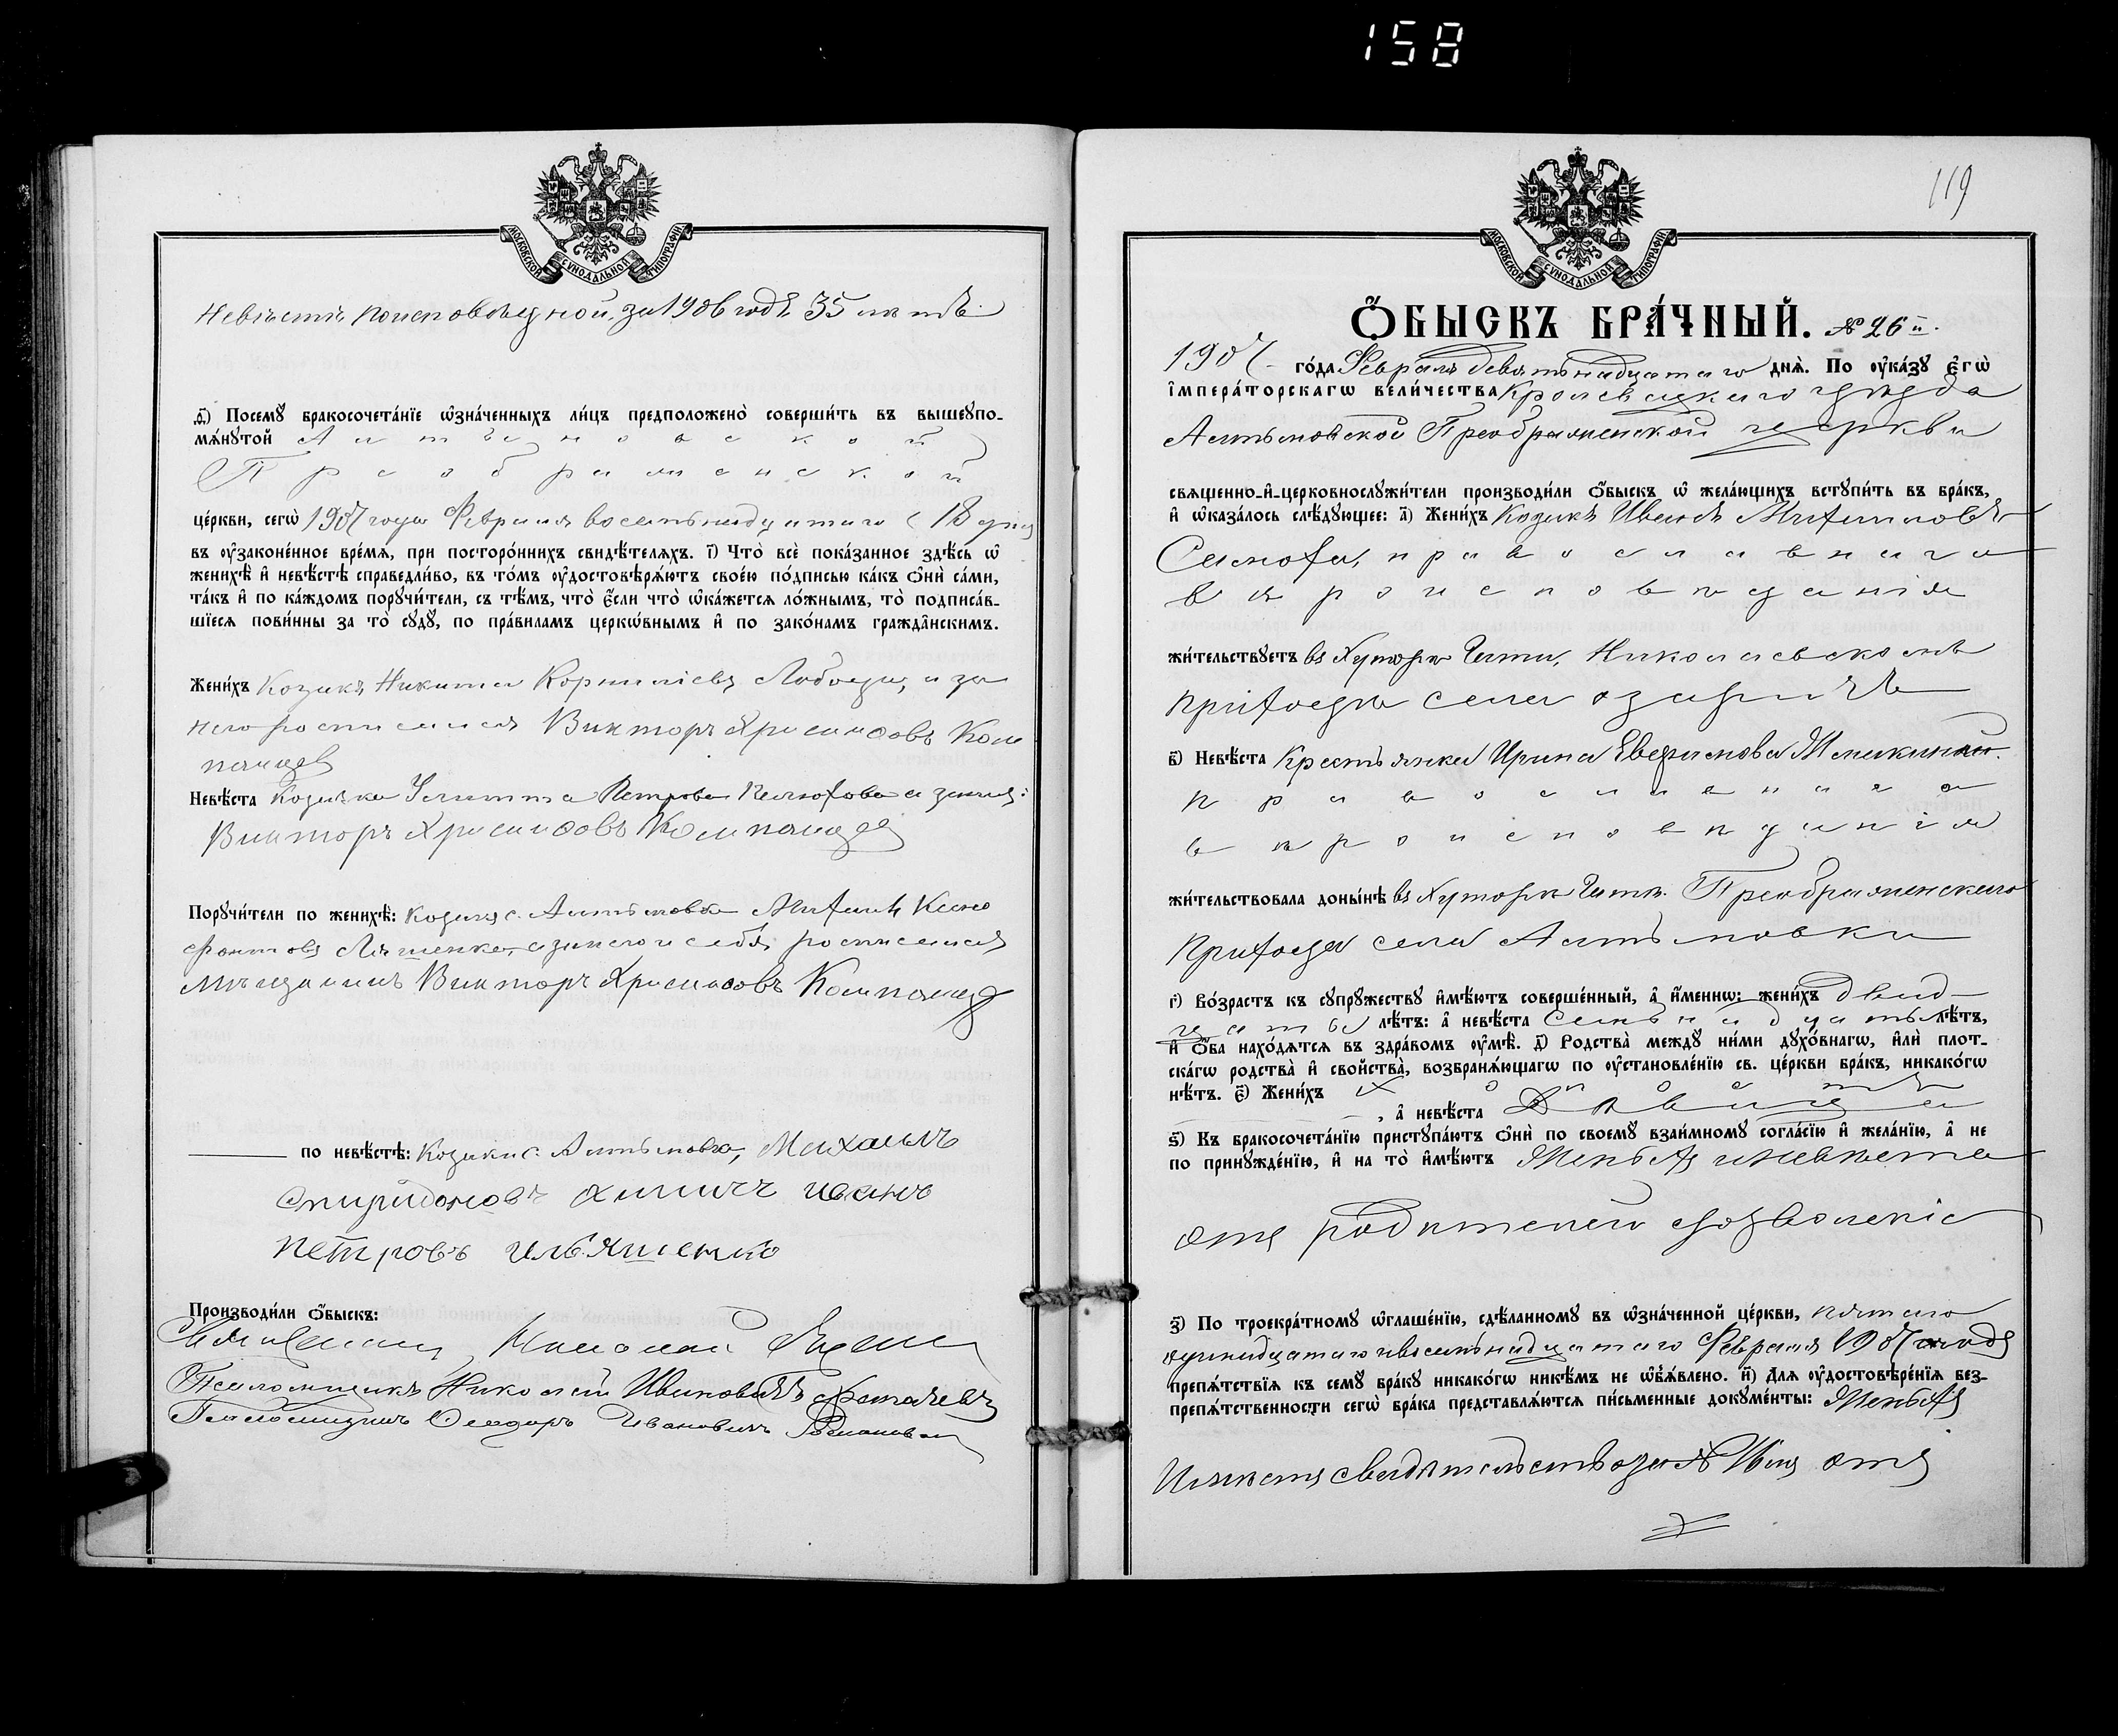 158
МОСКОВСКОЙ СѴНОДАЛЬНОЙ ТИПОГРАФІИ
Невѣста по исповѣдной за 1906 годъ 35 
д҃) Посемꙋ̀ бракосочета́нїе ѡ҆зна́ченныхъ ли́цъ предположено̀ соверши́ть въ вышеꙋпо-
мѧ́нꙋтой Алтыновской
Преображенской
це́ркви, сегѡ̀ 1907 года Февраля восемнадцатаго (18 дня
въ ᲂу҆законе́нное вре́мѧ, при посторо́ннихъ свидѣ́телѧхъ. і҃) Что̀ всѐ пока́занное здѣ́сь ѡ҆
женихѣ̀ и҆ невѣ́стѣ справедли́во, въ то́мъ ᲂу҆достовѣрѧ́ютъ свое́ю по́дписью ка́къ ѻ҆нѝ са́ми,
та́къ и҆ по ка́ждомъ порꙋчи́тели, съ тѣ́мъ, что̀ є҆́сли что̀ ѡ҆ка́жетсѧ ло́жнымъ, то̀ подписа́в-
шїесѧ пови́нны за то̀ сꙋдꙋ̀, по пра́виламъ церкѡ́внымъ и҆ по зако́намъ гражда̑нскимъ.
Жени́хъ Козакъ Никита Корниліевъ Лобода, и за
него росписался Викторъ Хрисанфовъ Ком
панецъ
Невѣ́ста Козачка Улитта Петрова 
Викторъ Хрисанфовъ Компанецъ
Порꙋчи́тели по женихѣ̀: Козаки с. Алтыновки Михаилъ Ксено
фонтовъ Ляшенко, а за него и себя росписался
мѣщанинъ Викторъ Хрисанфовъ Компанецъ
по невѣ́стѣ: Козаки с. Алтыновки, Михаилъ
Спиридоновъ Иванъ
Петровъ Ильяшенко
Производи́ли ѻ҆́быскъ:
Священникъ Николай
Псаломщикъ Николай Ивановичъ
Псаломщикъ Ѳеодоръ Ивановичъ
119
МОСКОВСКОЙ СѴНОДАЛЬНОЙ ТИПОГРАФІИ
Ѻ҆БЫСКЪ БРА́ЧНЫЙ. № 26й.
1907 го́да Февраля девятнадцатаго днѧ̀. По ᲂу҆ка́зꙋ Є҆гѡ̀
і҆мпера́торскагѡ вели́чества Кролевецкаго уѣзда
Алтыновской Преображенской церкви
свѧще́нно-и҆-церковнослꙋжи́тели производи́ли ѻ҆́быскъ ѡ҆ жела́ющихъ встꙋпи́ть въ бра́къ,
и҆ ѡ҆каза́лось слѣ́дꙋющее: а҃) Жени́хъ Козакъ Иванъ Михаиловъ
православнаго
вѣроисповѣданія
жи́тельствꙋетъ въ Хуторѣ Николаевскомъ
приходѣ села
в҃) Невѣ́ста Крестьянка Ирина
православнаго
вѣроисповѣданія
жи́тельствовала доны́нѣ въ Хуторѣ Преображенскаго
прихода села Алтыновки
г҃) Во́зрастъ къ сꙋпрꙋ́жествꙋ и҆мѣ́ютъ соверше́нный, а҆ и҆́меннѡ: жени́хъ двад-
цать лѣ́тъ: а҆ невѣ́ста семнадцать лѣ́тъ,
и҆ ѻ҆́ба нахо́дѧтсѧ въ здра́вомъ ᲂу҆мѣ̀. д҃) Родства̀ междꙋ̀ ни́ми дꙋхо́внагѡ, и҆лѝ плот-
ска́гѡ родства̀ и҆ сво́йства, возбранѧ́ющагѡ по ᲂу҆становле́нїю св. це́ркви бра́къ, никако́гѡ
нѣ́тъ. є҃) Жени́хъ холостъ
, а҆ невѣ́ста дѣвица
ѕ҃) Къ бракосочета́нїю пристꙋпа́ютъ ѻ҆нѝ по своемꙋ̀ взаи́мномꙋ согла́сїю и҆ жела́нїю, а҆ не
по принꙋжде́нїю, и҆ на то̀ и҆мѣ́ютъ Женихъ и невѣста
отъ родителей дозволеніе
з҃) По троекра́тномꙋ ѡ҆глаше́нїю, сдѣ́ланномꙋ въ ѡ҆зна́ченной це́ркви, пятаго
одинадцатаго и восемнадцатаго Февраля 1907 года
препѧ́тствїѧ къ семꙋ̀ бра́кꙋ никако́гѡ никѣ́мъ не ѡ҆б̾ѧ́влено. и҃) Длѧ ᲂу҆достовѣре́нїѧ без-
препѧ́тственности сегѡ̀ бра́ка представлѧ́ютсѧ пи́сьменные докꙋме́нты: Женихъ
имѣетъ свидѣтельство за № отъ